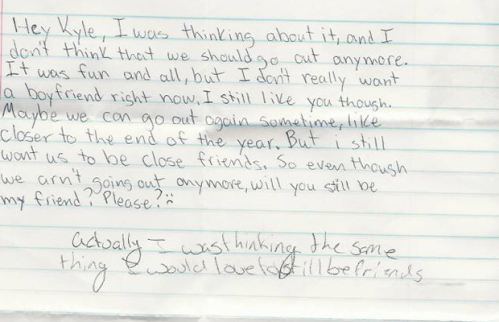 Hey Kyle, I was thinking about it, and I
don't think that we should go out anymore.
It was fun and all, but I don't really want
a boyfriend right now. I still like you though.
Maybe we can go out again sometime, like
closer to the end of the year. But i still
want us to be close friends. So even though
we arn't going out anymore, will you still be
my friend? Please? :)
actually I was thinking the same
thing I would love to still be friends